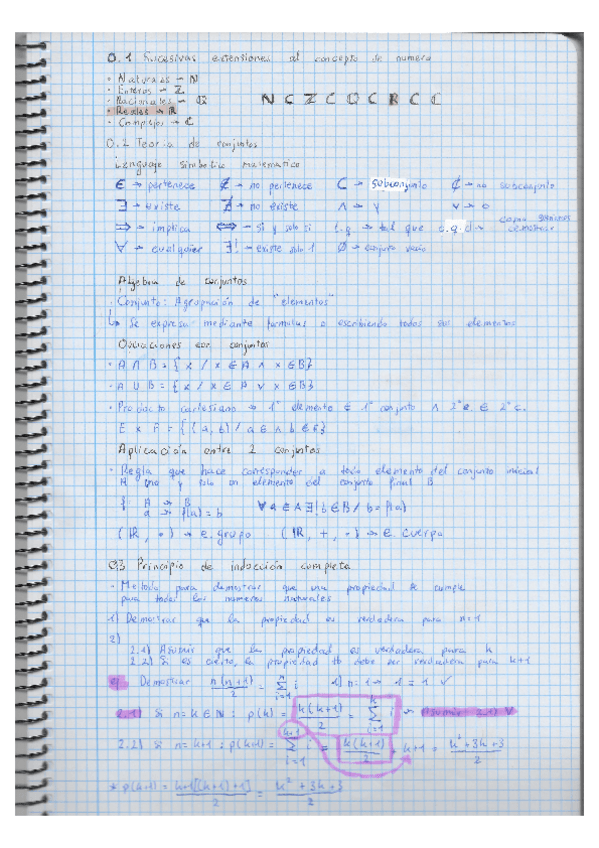 0.1 Sucesivas extensiones al concepto de numero
· Naturales → ℕ
· Enteros → ℤ
· Racionales → ℚ ℕ ⊂ ℤ ⊂ ℚ ⊂ ℝ ⊂ ℂ
· Reales → ℝ
· Complejos → ℂ
0.2 Teoria de conjuntos
Lenguaje simbolico matematico
∈ → pertenece ∉ → no pertenece ⊂ → subconjunto ⊄ → no subconjunto
∃ → existe ∄ → no existe ∧ → y ∨ → o
⇒ → implica ⇔ → si y solo si t.q → tal que c.q.d → como queriamos demostrar
∀ → cualquier ∃! → existe solo 1 ∅ → conjunto vacio
Algebra de conjuntos
· Conjunto: Agrupación de "elementos"
↳ Se expresa mediante formulas o escribiendo todos sus elementos
Operaciones con conjuntos
· A ∩ B = { x / x ∈ A ∧ x ∈ B}
· A ∪ B = { x / x ∈ A ∨ x ∈ B}
· Producto cartesiano → 1° elemento ∈ 1° conjunto ∧ 2° e. ∈ 2° c.
E × F = { (a, b) / a ∈ E ∧ b ∈ F}
Aplicación entre 2 conjuntos
· Regla que hace corresponder a todo elemento del conjunto inicial
A uno y solo un elemento del conjunto final B
f: A → B ∀ a ∈ A ∃! b ∈ B / b = f(a)
a → f(a) = b
(ℝ, +) → e. grupo (ℝ, +, ·) → e. cuerpo
0.3 Principio de inducción completa
· Metodo para demostrar que una propiedad se cumple
para todos los números naturales
1) Demostrar que la propiedad es verdadera para n=1
2)
2.1) Asumir que la propiedad es verdadera para k
2.2) Si es cierto, la propiedad tb debe ser verdadera para k+1
ej Demostrar n(n+1)/2 = Σ i=1 n i 1) n=1 → 1 = 1 ✓
2.1) Si n=k ∈ ℕ : p(k) = k(k+1)/2 = Σ i=1 k i → Asumir 2.1) V
2.2) Si n=k+1 : p(k+1) = Σ i=1 k+1 i = k(k+1)/2 + k+1 = k²+3k+3/2
* p(k+1) = k+1[(k+1)+1]/2 = k²+3k+3/2